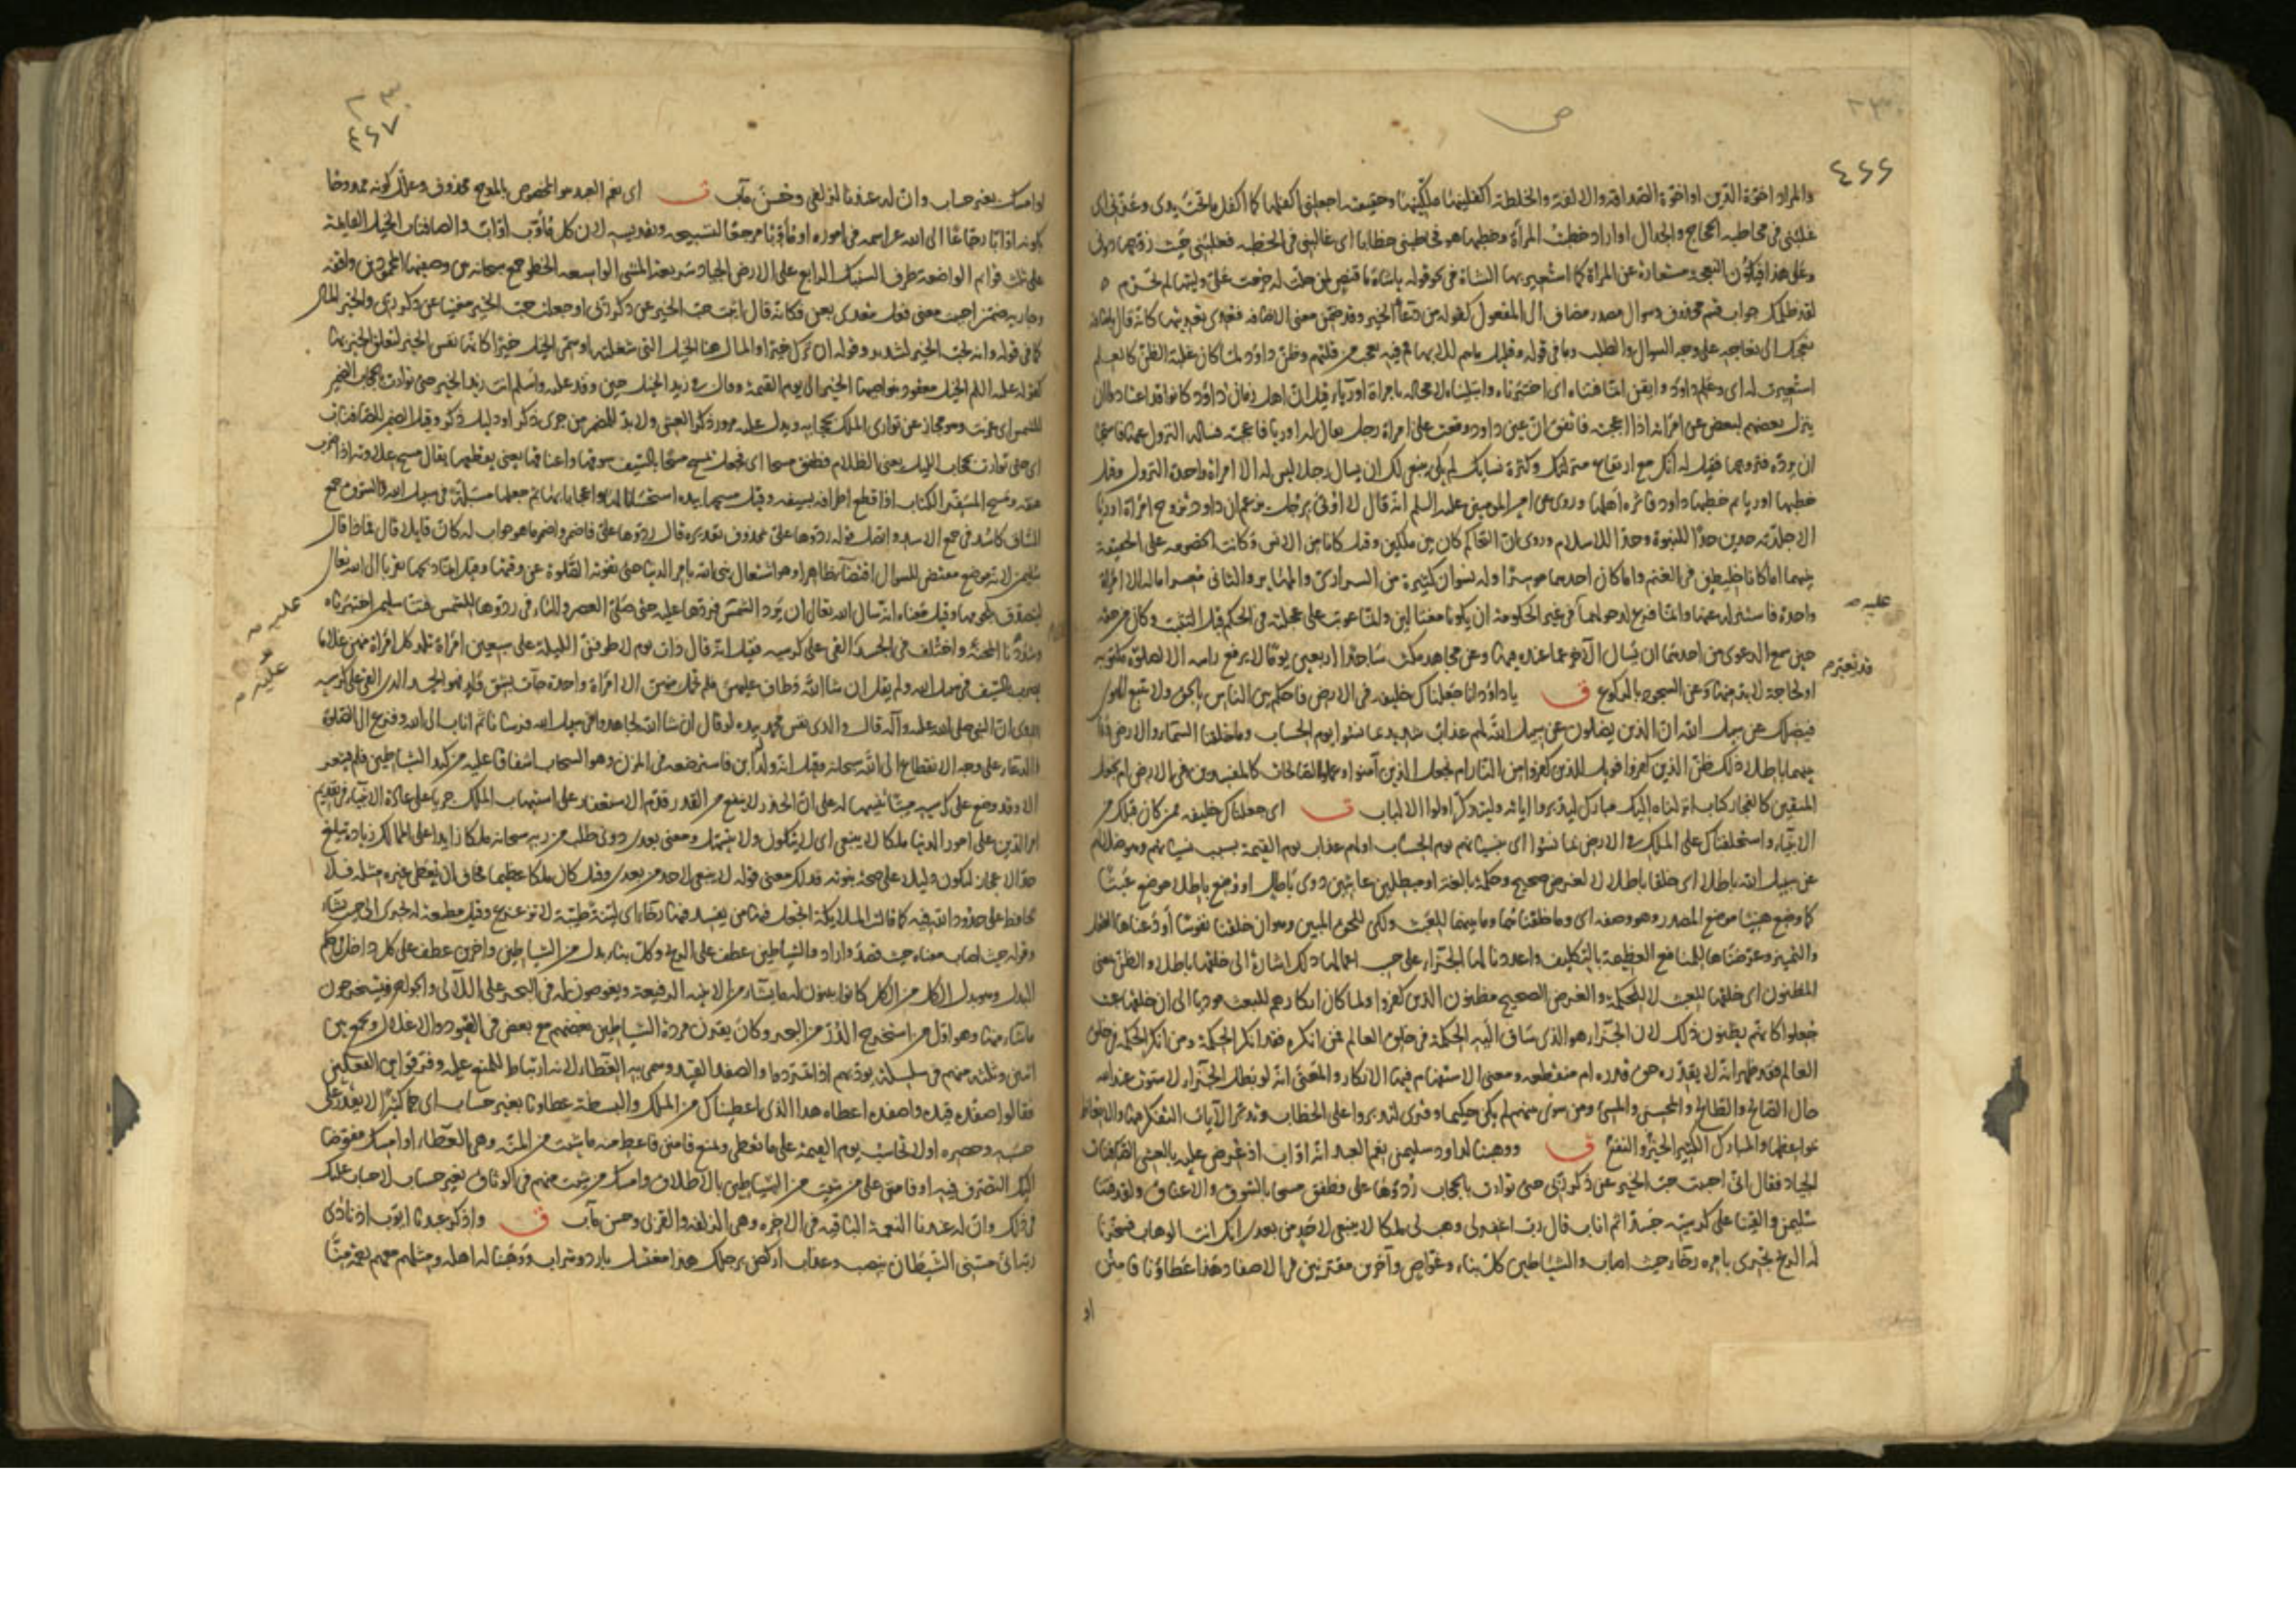 ص
٤٦٦
والمراد اخوّة الدين او اخوّة الصداقة والالفة والخلطة اكفلنيها ملّكنيها وحقيقته اجعلنى اكفلها كما اكفل ما تحت يدى وعزّنى اى
غلبنى فى مخاطبة الحجاج والجدال او اراد خطبت المرأة وخطبها هو فخاطبنى خطابا اى غالبنى فى الخطبة فغلبنى حيث زوّجها دونى
وعلى هذا فيكون النعجة مستعارة عن المرأة كما استعير بها الشاة فى نحو قوله يا شاة ما قنص لمن حلّت له حرمت علىّ وليتها لم تحرم
لقد ظلمك جواب قسم محذوف وسؤال مصدر مضاف الى المفعول كقوله من دعاء الخير وقد ضمّن معنى الاضافة فعدّى تعديتها كانه قال باضافة
نعجتك الى نعاجه على وجه السؤال والطلب وما فى قوله وقليل ما هم للابهام وفيه تعجب من قلتهم وظنّ داود لما كان غلبة الظن كالعلم
استعيرت له اى وعلم داود وايقن انما فتناه اى اختبرناه وابتليناه لا محالة بامرأة اوريا وقيل ان اهل زمان داود كانوا قد اعتادوا ان
ينزل بعضهم لبعض عن امرأته اذا اعجبته فاتفق ان عين داود وقعت على امرأة رجل يقال له اوريا فاعجبته فساله النزول عنها فاستحيا
ان يردّه فتزوجها فقيل له انك مع ارتفاع منزلتك وكثرة نسائك لم يكن ينبغى لك ان يسال رجلا ليس له الا امرأة واحدة النزول وقيل
خطبها اوريا ثم خطبها داود فآثره اهلها وروى عن امير المومنين عليه السلم انه قال لا اوتى برجل يزعم ان داود تزوج امرأة اوريا
الا جلدته حدين حدا للنبوة وحدا للاسلام وروى ان التحاكم كان بين ملكين وقيل كانا من الانس وكانت الخصومة على الحقيقة
بينهما اما كانا خليطين فى الغنم واما كان احدهما موسرا وله نسوان كثيرة من السرارى والمهاير والثانى معسرا ما له الا امرأة
واحدة فاستنزله عنها وانما فزع لدخولهما فى غير الحكومة ان يكونا مغتالين وانما عوتب على عجلته فى الحكم قبل التثبت وكان من حقه
حين سمع الدعوى من احدهما ان يسال الآخر عما عنده فيها وعن مجاهد مكث ساجدا اربعين يوما لا يرفع راسه الا لصلوة مكتوبة
او لحاجة لا بد منها وعن السجود بالركوع ق يا داود انا جعلناك خليفة فى الارض فاحكم بين الناس بالحق ولا تتبع الهوى
فيضلك عن سبيل الله ان الذين يضلون عن سبيل الله لهم عذاب شديد بما نسوا يوم الحساب وما خلقنا السماء والارض وما
بينهما باطلا ذلك ظن الذين كفروا فويل للذين كفروا من النار ام نجعل الذين آمنوا وعملوا الصالحات كالمفسدين فى الارض ام نجعل
المتقين كالفجار كتاب انزلناه اليك مبارك ليدبروا اياته وليتذكر اولوا الالباب ت اى جعلناك خليفة ممن كان قبلك من
الانبياء واستخلفناك على الملك فى الارض بما نسوا اى بنسيانهم يوم الحساب او لهم عذاب يوم القيمة بسبب نسيانهم وهو ضلالهم
عن سبيل الله باطلا اى خلقا باطلا لا لغرض صحيح وحكمة بالغة او مبطلين عابثين ذوى باطل او وضع باطلا موضع عبثا
كما وضع هنيئا موضع المصدر وهو وصفه اى وما خلقناهما وما بينهما للعبث ولكن للحق المبين وهو ان خلقنا نفوسا اودعناها العقل
والتميز وعرّضناها للمنافع العظيمة بالتكليف واعددنا لها الجزاء على حسب اعمالها ذلك اشارة الى خلقها باطلا والظن بمعنى
المظنون اى خلقها للعبث لا للحكمة والغرض الصحيح مظنون الذين كفروا ولما كان انكارهم للبعث موديا الى ان خلقها عبث
جعلوا كانهم يظنون ذلك لان الجزاء هو الذى ساق اليه الحكمة فى خلق العالم فمن انكره فقد انكر الحكمة ومن انكر الحكمة فى خلق
العالم فقد ظهر انه لا يقدره حق قدره ام منقطعة ومعنى الاستفهام فيها الانكار والمعنى انه لو بطل الجزاء لاستوت عند الله
حال الصالح والطالح والمحسن والمسئ ومن سوّى بينهم لم يكن حكيما وقرئ لتدبروا على الخطاب وتدبر الآيات التفكر فيها والاتعاظ
بمواعظها والمبارك الكثير الخير والنفع ق ووهبنا لداود سليمن نعم العبد انه اواب اذ عرض عليه بالعشى الصافنات
الجياد فقال انى احببت حب الخير عن ذكر ربى حتى توارت بالحجاب ردوها على فطفق مسحا بالسوق والاعناق ولقد فتنا
سليمن والقينا على كرسيه جسدا ثم اناب قال رب اغفر لى وهب لى ملكا لا ينبغى لاحد من بعدى انك انت الوهاب فسخرنا
له الريح تجرى بامره رخاء حيث اصاب والشياطين كل بناء وغواص وآخرين مقرنين فى الاصفاد هذا عطاؤنا فامنن
او
٤٦٧
او امسك بغير حساب وان له عندنا لزلفى وحسن مآب ت اى نعم العبد هو المخصوص بالمدح محذوف وعلّل كونه ممدوحا
بكونه اوابا رجّاعا الى الله عز اسمه فى اموره او مأوّبا مرجعا لتسبيحه وتقديسه لان كل مأوّب اواب والصافنات الخيل القائمة
على ثلث قوائم الواضعة طرف السنبك الرابع على الارض الجياد سريعة المشى الواسعة الخطو جمع سبحانه بين وصفيها المحمودين واقفة
وجارية ضمّن احببت معنى فعل متعدى بعن فكانه قال انبت حب الخير عن ذكر ربى او جعلت حب الخير مغنيا عن ذكر ربى والخير المال
كما فى قوله وانه لحب الخير لشديد وقوله ان ترك خيرا والمال هنا الخيل التى شغلته او سمى الخيل خيرا كانها نفس الخير لتعلق الخير بها
كقوله عليه السلم الخيل معقود بنواصيها الخير الى يوم القيمة وقال فى زيد الخيل حين وفد عليه واسلم انت زيد الخير حتى توارت بالحجاب الضمير
للشمس اى غربت وهو مجاز عن توارى الملك بحجابه ويدل عليه مرور ذكر العشى ولا بد للمضمر من جرى ذكر او دليل ذكر وقيل الضمير للصافنات
اى حتى توارت بحجاب الليل يعنى الظلام فطفق مسحا اى فجعل يمسح مسحا بالسيف سوقها واعناقها يعنى يقطعها يقال مسح علاوته اذا ضرب
عنقه ومسح المسفر الكتاب اذا قطع اطرافه بسيفه وقيل مسحها بيده استحسانا لها واعجابا بها ثم جعلها مسبّلة فى سبيل الله والسوق جمع
الساق كالاسد فى جمع الاسد واتصل قوله ردوها على بمحذوف تقديره قال ردوها علىّ فاضمر واضمر ما هو جواب له كان قائلا قال فماذا قال
سليمن لانه موضع مقتض للسوال اقتضاء ظاهرا وهو اشتغال نبى الله بامر الدنيا حتى تفوته الصلوة عن وقتها وقيل انما ذبحها تقربا الى الله تعالى
ليتصدق بلحومها وقيل معناه انه سال الله تعالى ان يرد الشمس فردها عليه حتى صلى العصر والهاء فى ردوها للشمس فتنا سليمن اختبرناه
وشددنا المحنة واختلف فى الجسد القى على كرسيه فقيل انه قال ذات يوم لاطوفن الليلة على سبعين امرأة تلد كل امرأة منهن غلاما
يضرب بالسيف فى سبيل الله ولم يقل ان شا الله فطاف عليهن فلم تحمل منهن الا امرأة واحدة جاءت بشق ولد فهو الجسد الذى القى على كرسيه
وروى ان النبى صلى الله عليه وآله قال والذى نفس محمد بيده لو قال ان شا الله لجاهدوا فى سبيل الله فرسانا ثم اناب الى الله وفزع الى الصلوة
والدعاء على وجه الانقطاع الى الله سبحانه وقيل انه ولد له ابن فاسترضعه فى المزن وهو السحاب اشفاقا عليه من كيد الشياطين فلم يشعر
الا وقد وضع على كرسيه ميتا تنبيها له على ان الحذر لا ينفع من القدر قدّم الاستغفار على استيهاب الملك جريا على عادة الانبياء فى تقديم
امر الدين على امور الدنيا ملكا لا ينبغى اى لا يتكون ولا يتسهل ومعنى بعدى دونى طلب من ربه سبحانه ملكا زايدا على الممالك زيادة تبلغ
حد الاعجاز ليكون دليلا على صحة نبوته فذلك معنى قوله لا ينبغى لاحد من بعدى وقيل كان ملكا عظيما فخاف ان يعطى غيره مثله فلا
يحافظ على حدود الله فيه كما قالت الملائكة اتجعل فيها من يفسد فيها رخاء اى لينة طيبة لا تزعزع وقيل مطيعة له تجرى الى حيث يشاء
وقوله حيث اصاب معناه حيث قصد واراد والشياطين عطف على الريح وكل بناء بدل من الشياطين واخرين عطف على كل داخل فى حكم
البدل وهو بدل الكل من الكل كانوا يبنون له ما يشاء من الابنية الرفيعة ويغوصون له فى البحر على اللآلى والجواهر فيستخرجون
ما شاء منها وهو اول من استخرج الدرّ من البحر وكان يقرن مردة الشياطين بعضهم مع بعض فى القيود والاغلال ويجمع بين
اثنين وثلثة منهم فى سلسلة يؤدبهم اذا تمردوا والصفد القيد وسمى به العطاء لانه ارتباط للمنعم عليه وفرقوا بين الفعلين
فقالوا صفده قيده واصفده اعطاه هذا الذى اعطيناك من الملك والبسطة عطاؤنا بغير حساب اى جما كثيرا لا يقدر على
حسبه وحصره او لا تحاسب يوم القيمة على ما تعطى وتمنع فامنن فاعط منه ما شئت من المنة وهى العطاء او امسك مفوضا
اليك التصرف فيه او فامنن على من شئت من الشياطين بالاطلاق وامسك من شئت منهم فى الوثاق بغير حساب لا حساب عليك
فى ذلك وان له عندنا النعمة الباقية فى الاخرة وهى الزلفة والقربى وحسن مآب ق واذكر عبدنا ايوب اذ نادى
ربه انى مسنى الشيطان بنصب وعذاب اركض برجلك هذا مغتسل بارد وشراب ووهبنا له اهله ومثلهم معهم رحمة منّا